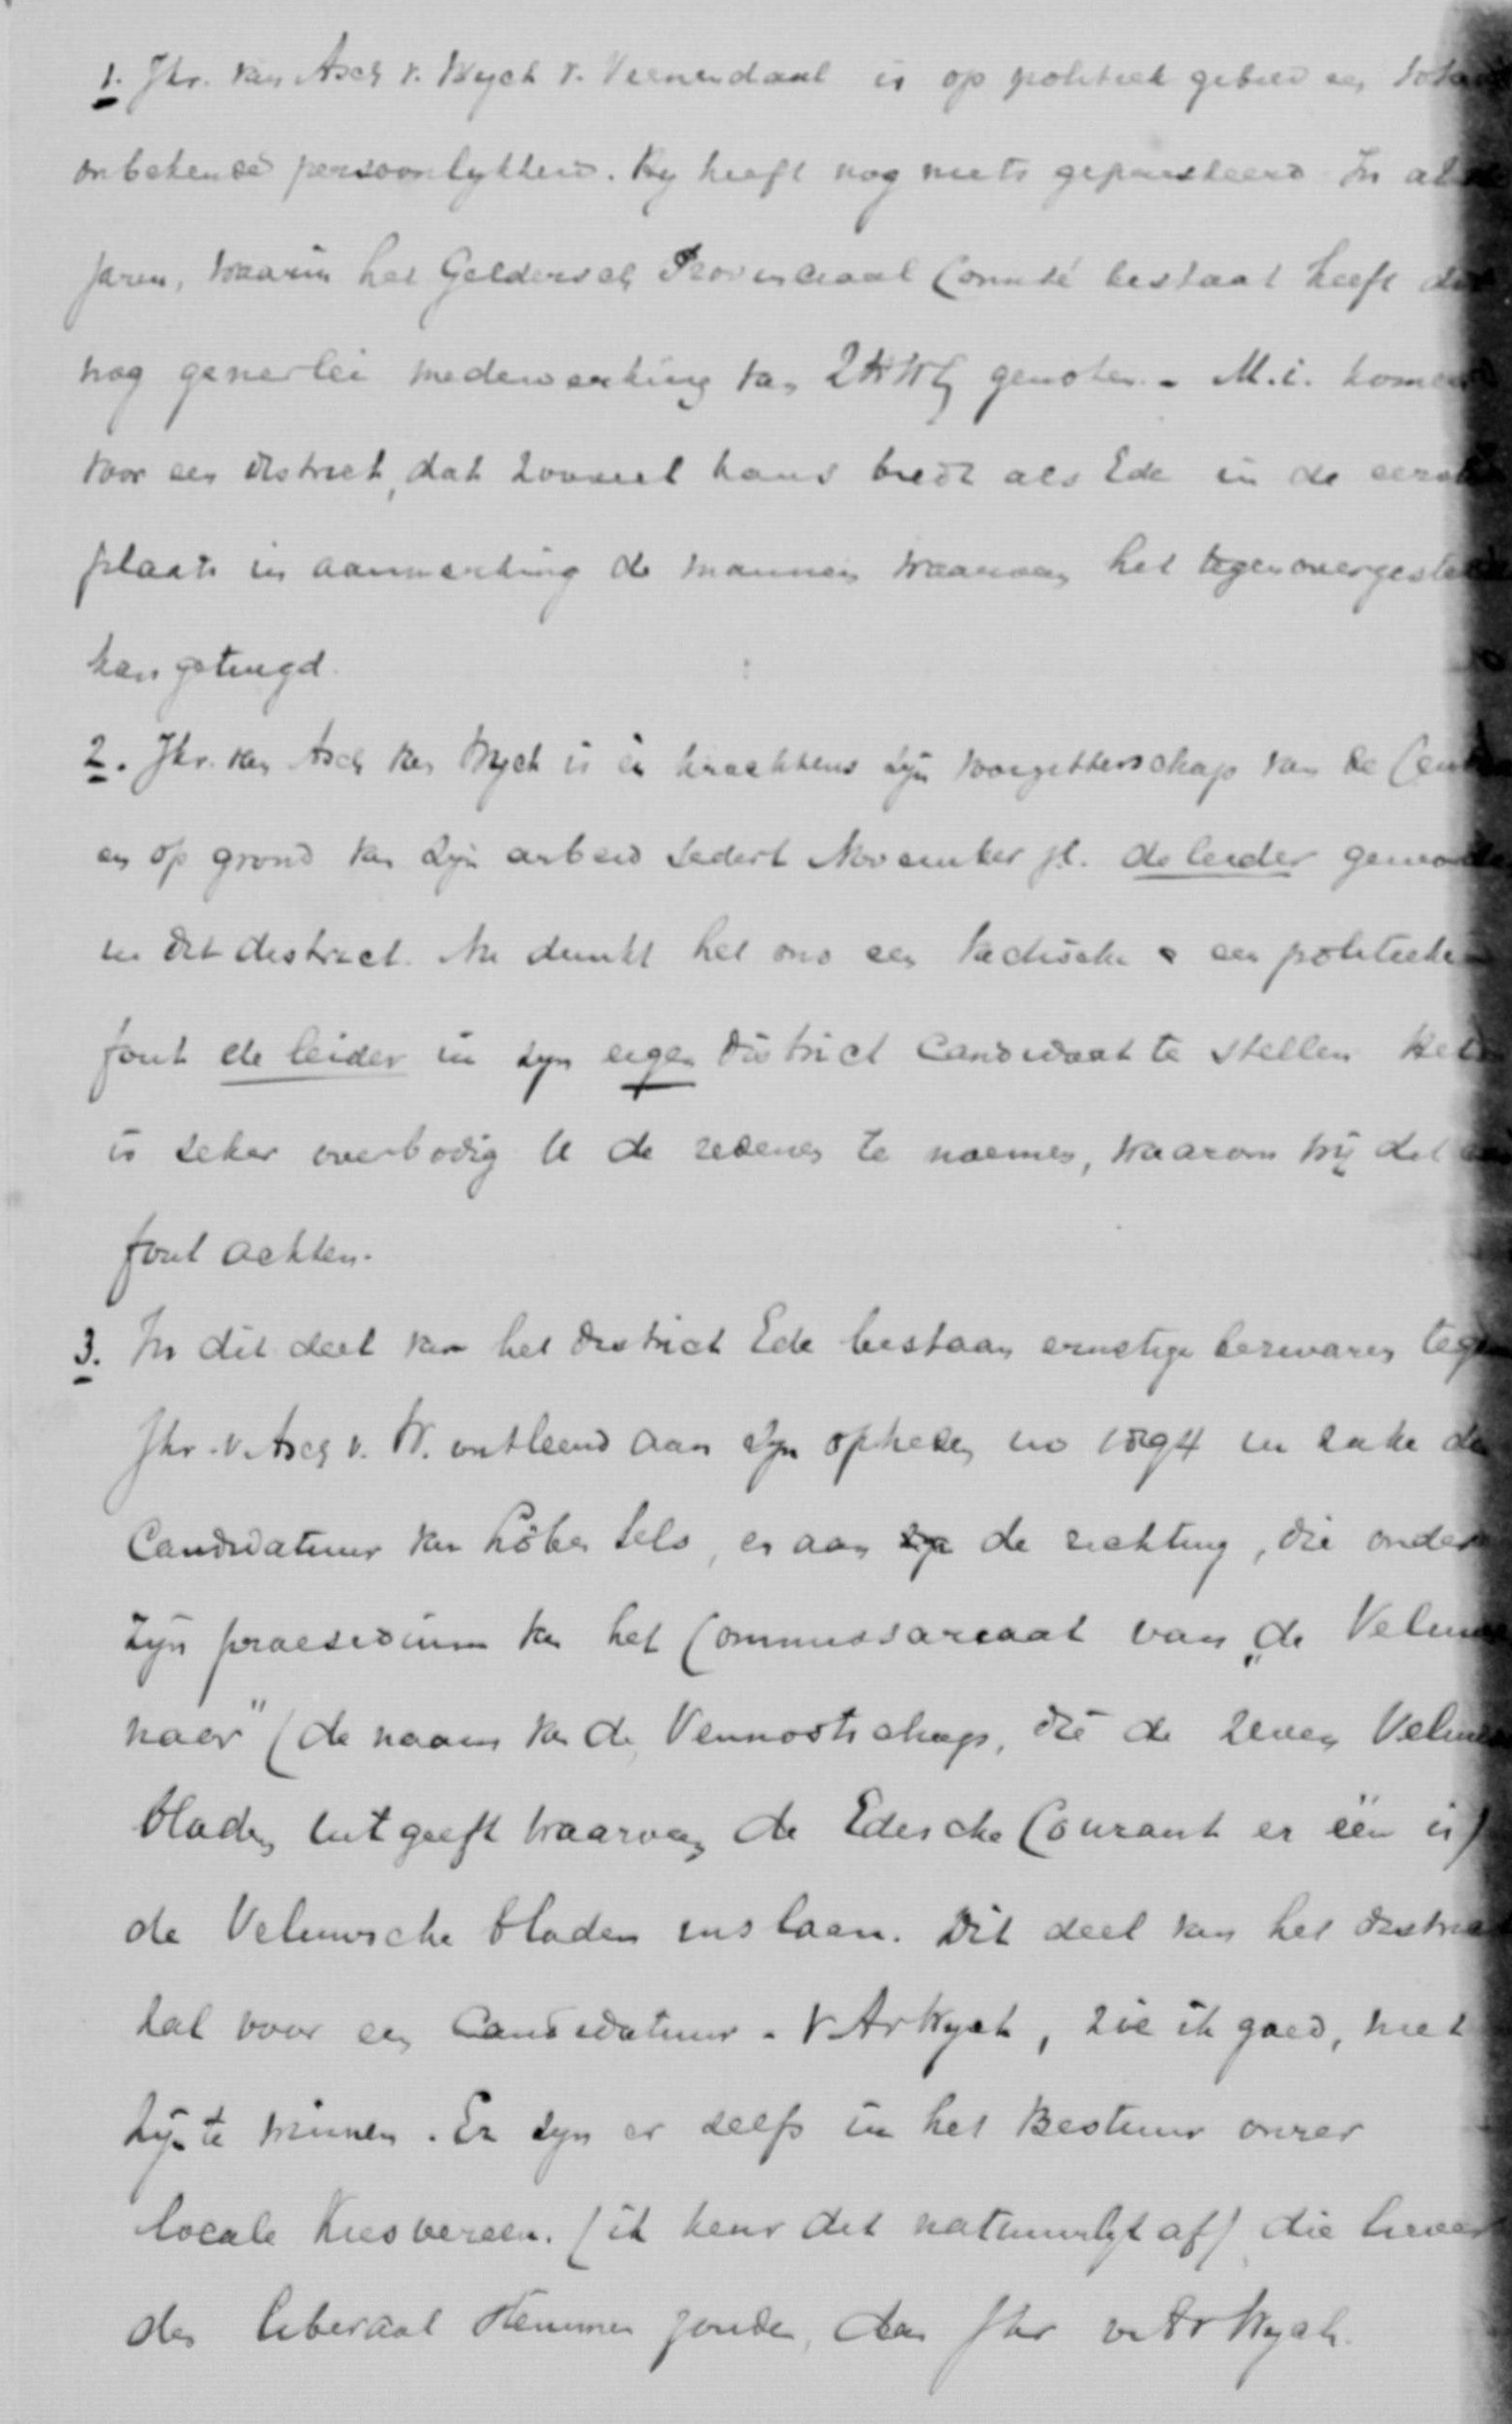 1. Jhr. van Asch v. Wyck v. Veenendaal is op politiek gebied een
onbekende persoonlykheid. Hy heeft nog niets gepresteerd. In al
jaren, waarin het Geldersch Provinciaal Comité bestaat heeft
nog generlei medewerking van ZHWG genoten. - M.i. komen
voor een district, dat zooveel kans biedt als Ede in de eerste
plaats in aanmerking de mannen waarvan het tegenovergestelde
kan getuigd.
2. Jhr. van Asch van Wyck is èn krachtens zijn voorzitterschap van de
en op grond van zijn arbeid sedert November jl. de leider geworden
in dit district. Nu dunkt het ons een tactische & een politieke
fout de leider in zyn eigen district candidaat te stellen. Het
is zeker overbodig U de redenen te noemen, waarom wij dit een
fout achten.
3. In dit deel van het district Ede bestaan ernstige bezwaren tegen
Jhr. v. Asch v. W. ontleend aan zyn optreden in 1894 in zake de
Candidatuur van Löben Sels, en aan de richting, die onder
zijn praesidium van het Commissariaat van "de Veluwe
naar" (de naam van de Vennootschap, die de zeven Veluwsche
bladen uitgeeft waarvan de Edesche Courant er één is)
de Veluwsche bladen inslaan. Dit deel van het district
zal voor een Candidatuur - v As v Wyck, zie ik goed, niet
zijn te winnen. Er zyn er zelfs in het Bestuur onzer
locale Kiesvereen. (ik keur dit natuurlyk af) die liever
den liberaal stemmen zouden, dan Jhr v As v Wyck.